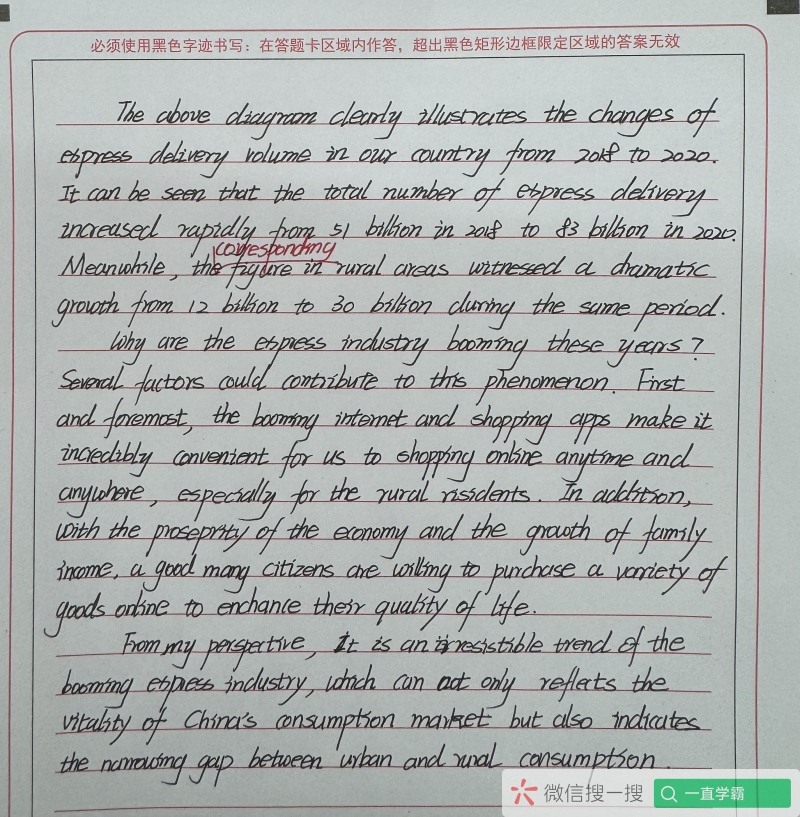 必须使用黑色字迹书写：在答题卡区域内作答，超出黑色矩形边框限定区域的答案无效
The above diagram clearly illustrates the changes of
express delivery volume in our country from 2018 to 2020.
It can be seen that the total number of express delivery
increased rapidly from 51 billion in 2018 to 83 billion in 2020.
corresponding
Meanwhile, the figure in rural areas witnessed a dramatic
growth from 12 billion to 30 billion during the same period.
Why are the express industry booming these years?
Several factors could contribute to this phenomenon. First
and foremost, the booming internet and shopping apps make it
incredibly convenient for us to shopping online anytime and
anywhere, especially for the rural risidents. In addition,
with the proseprity of the economy and the growth of family
income, a good many citizens are willing to purchase a variety of
goods online to enchance their quality of life.
From my perspective, It is an irresistible trend of the
booming express industry, which can not only reflects the
vitality of China's consumption market but also indicates
the narrowing gap between urban and rural consumption.
微信搜一搜
一直学霸